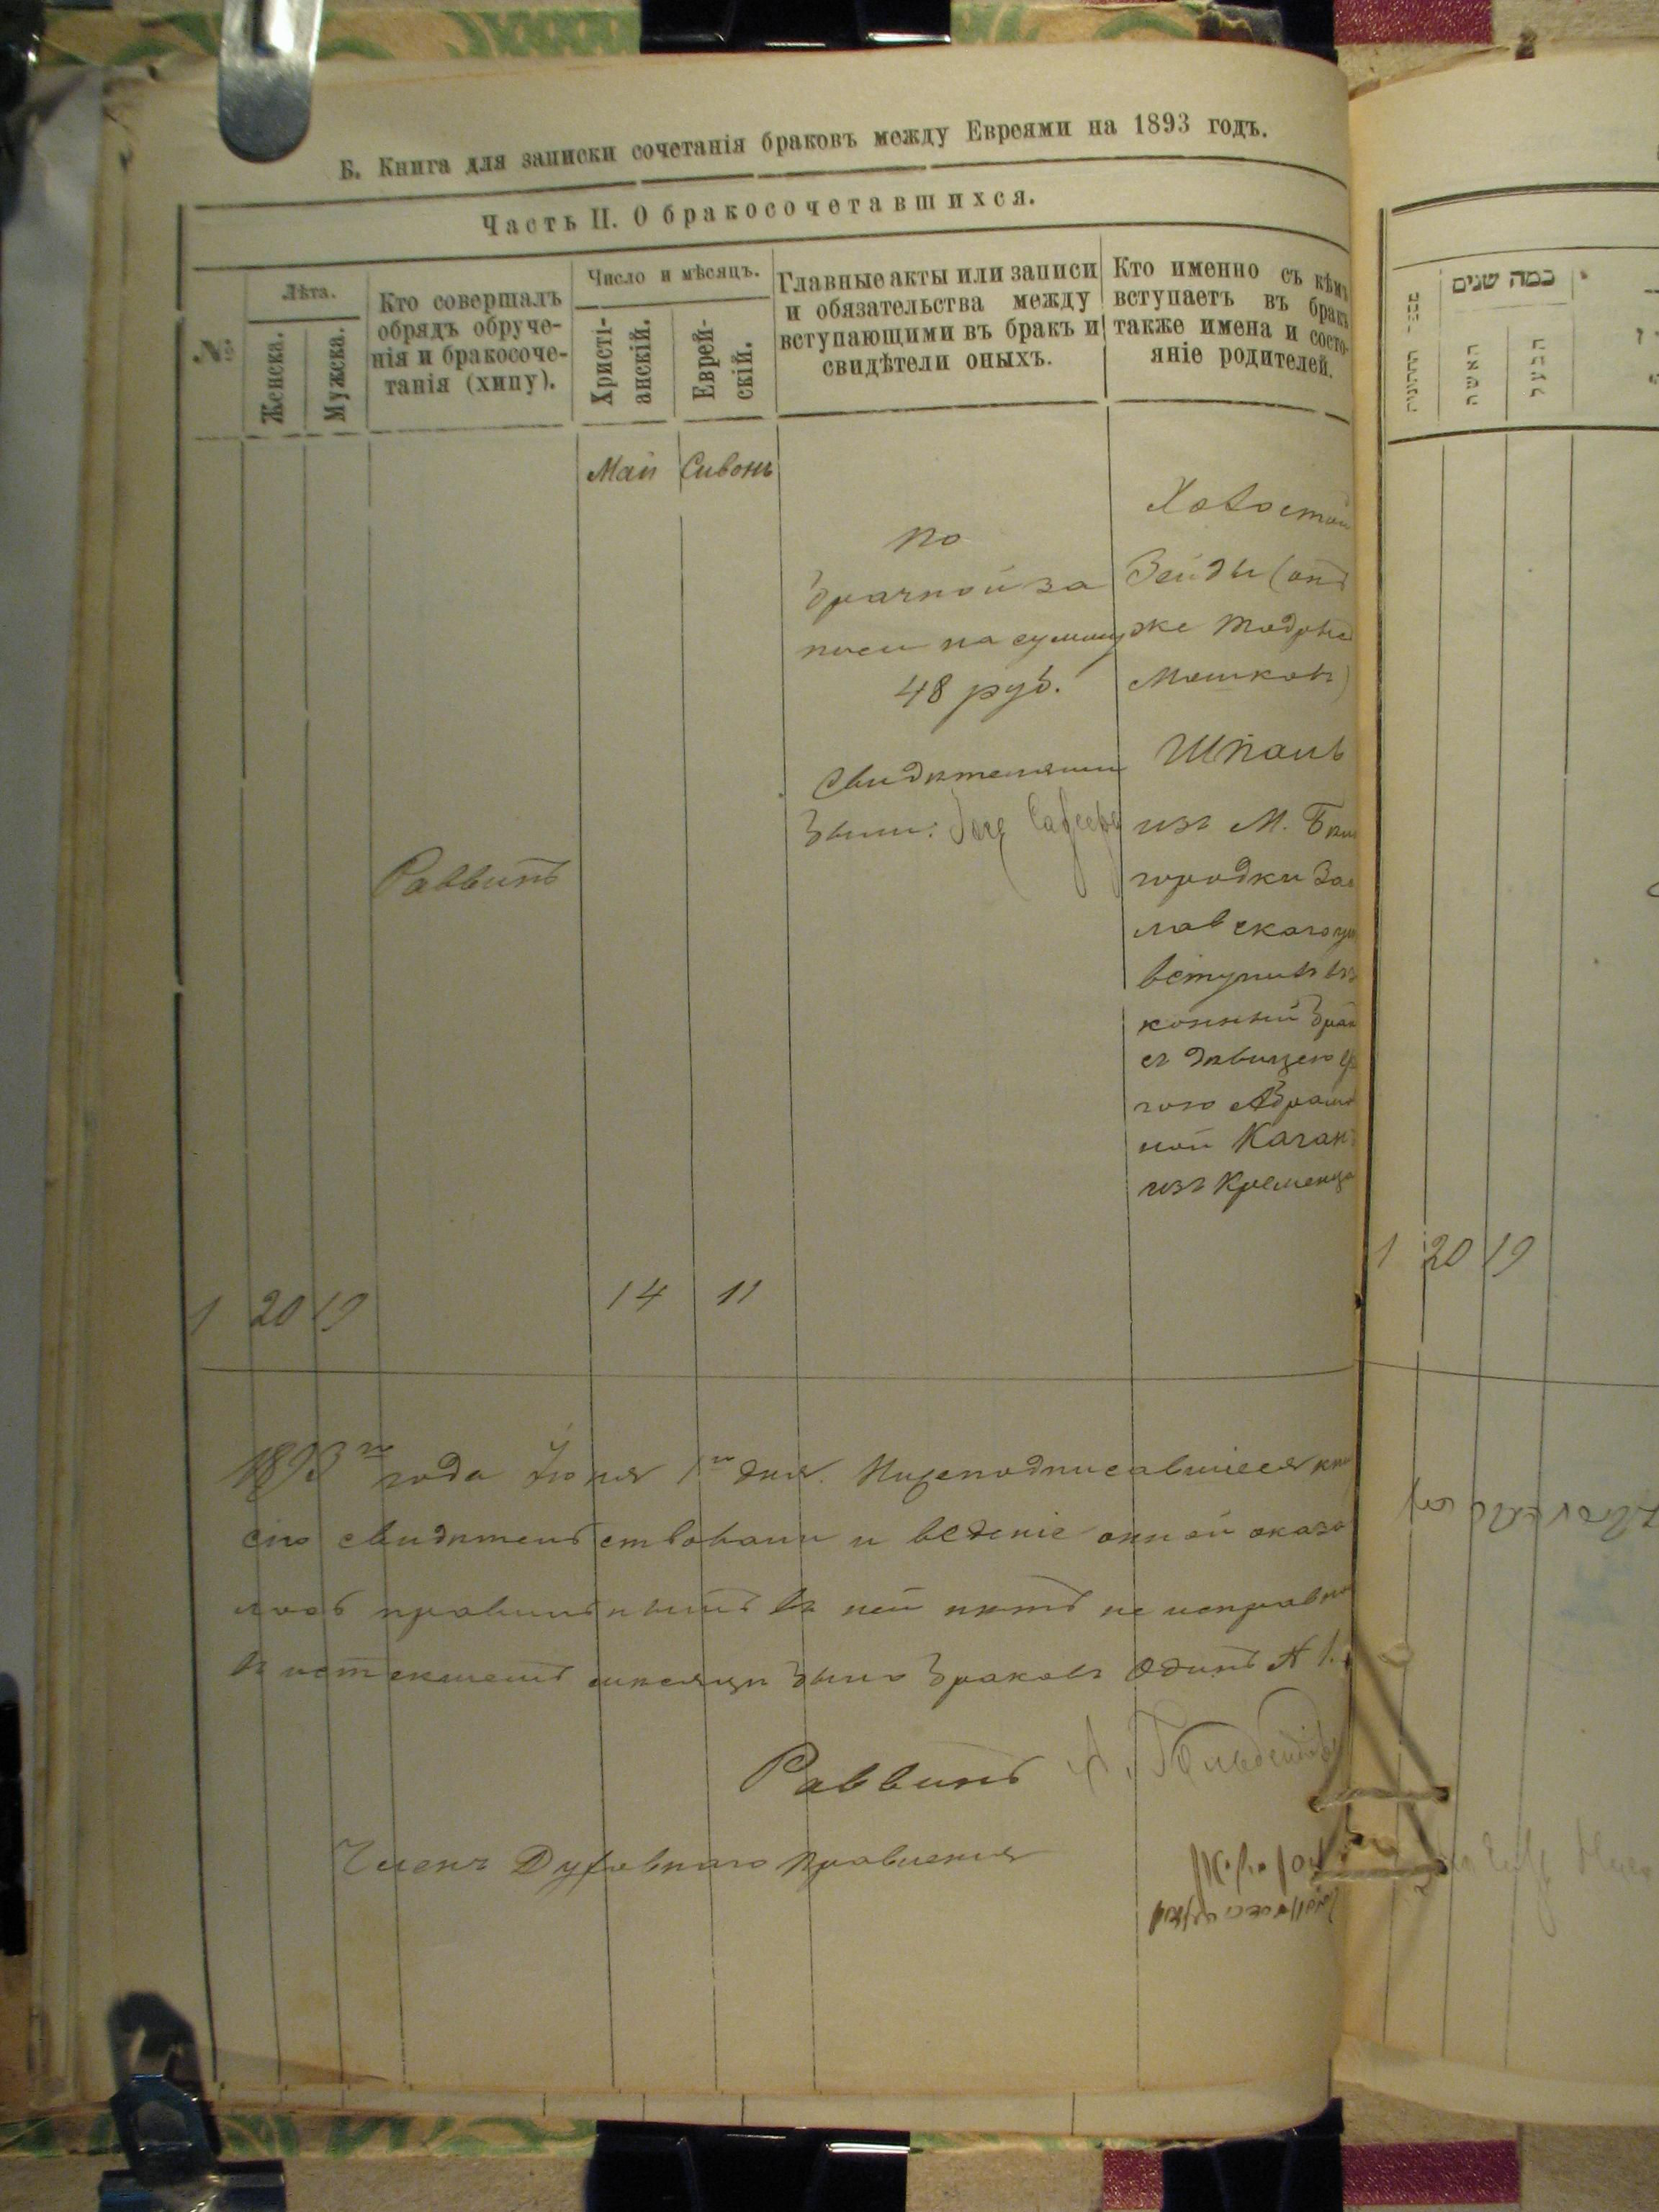 Б. Книга для записки сочетанія браковъ между Евреями на 1893 годъ.
Часть II. О бракосочетавшихся.
№
Лѣта.
Женска.
Мужска.
Кто совершалъ
обрядъ обруче-
нія и бракосоче-
танія (хипу).
Число и мѣсяцъ.
Христі-
анскій.
Еврей-
скій.
Главные акты или записи
и обязательства между
вступающими въ бракъ и
свидѣтели оныхъ.
Кто именно съ кѣмъ
вступаетъ въ бракъ
также имена и состо-
яніе родителей.
כמה שנים
האשה
הבעל
Май
Сивонь
Раввинъ
По
брачной за
писи на сумму
48 руб.
Свидѣтелями
были:
Холостой
Зейды (онъ
же
Мошковъ)
Шпаль
изъ М. Бѣл
городки Зас
лавскаго у
вступилъ въ
конный брак
съ дѣвицею
Абрамо
ной Каган
изъ Кременца
1 20 19
14 11
1 20 19
1893 го года Іюня 1 го дня. Нижеподписавшіеся кни
сію свидѣтельствовали и веденіе оной оказа
лось правильнымъ въ ней нѣтъ не исправно
въ истекшемъ мѣсяцѣ было браковъ Одинъ № 1.
Раввинъ
Членъ Духовнаго Правленія